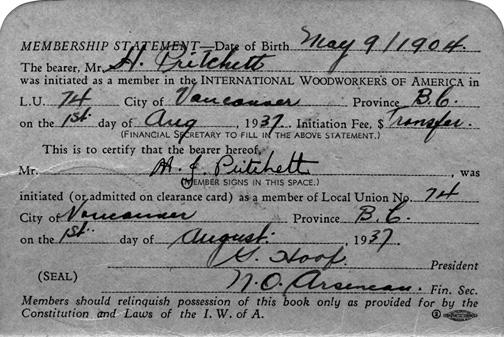 MEMBERSHIP STATEMENT—Date of Birth May 9/1904.
The bearer, Mr. H. Pritchett
was initiated as a member in the INTERNATIONAL WOODWORKERS OF AMERICA in
L.U. 74 City of Vancouver Province B.C.
on the 1st day of Aug , 1937. Initiation Fee, $ Transfer.
(FINANCIAL SECRETARY TO FILL IN THE ABOVE STATEMENT.)
This is to certify that the bearer hereof,
Mr. H. J. Pritchett , was
(MEMBER SIGNS IN THIS SPACE.)
initiated (or admitted on clearance card) as a member of Local Union No. 74
City of Vancouver Province B.C.
on the 1st. day of August. 1937
President
(SEAL) Fin. Sec.
Members should relinquish possession of this book only as provided for by the
Constitution and Laws of the I. W. of A.